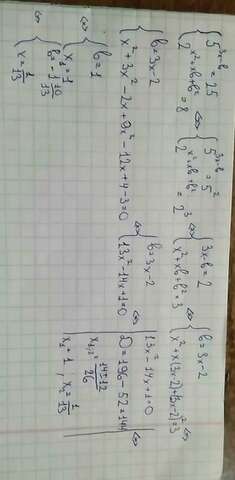 { 5^{3x-b} = 25
2^{x²+xb+b²} = 8 ⇔ { 5^{3x-b} = 5²
2^{x²+xb+b²} = 2³ ⇔ { 3x-b=2
x²+xb+b²=3 ⇔ { b=3x-2
x²+x(3x-2)+(3x-2)²=3 ⇔
{ b=3x-2
x²+3x²-2x+9x²-12x+4-3=0 ⇔ { b=3x-2
13x²-14x+1=0 ⇔
13x²-14x+1=0
D=196-52=144
x₁,₂ = \frac{14±12}{26}
x₁=1, x₂=\frac{1}{13}
⇔ { b=1
x₁=1
{ b=-1\frac{10}{13}
x=\frac{1}{13}